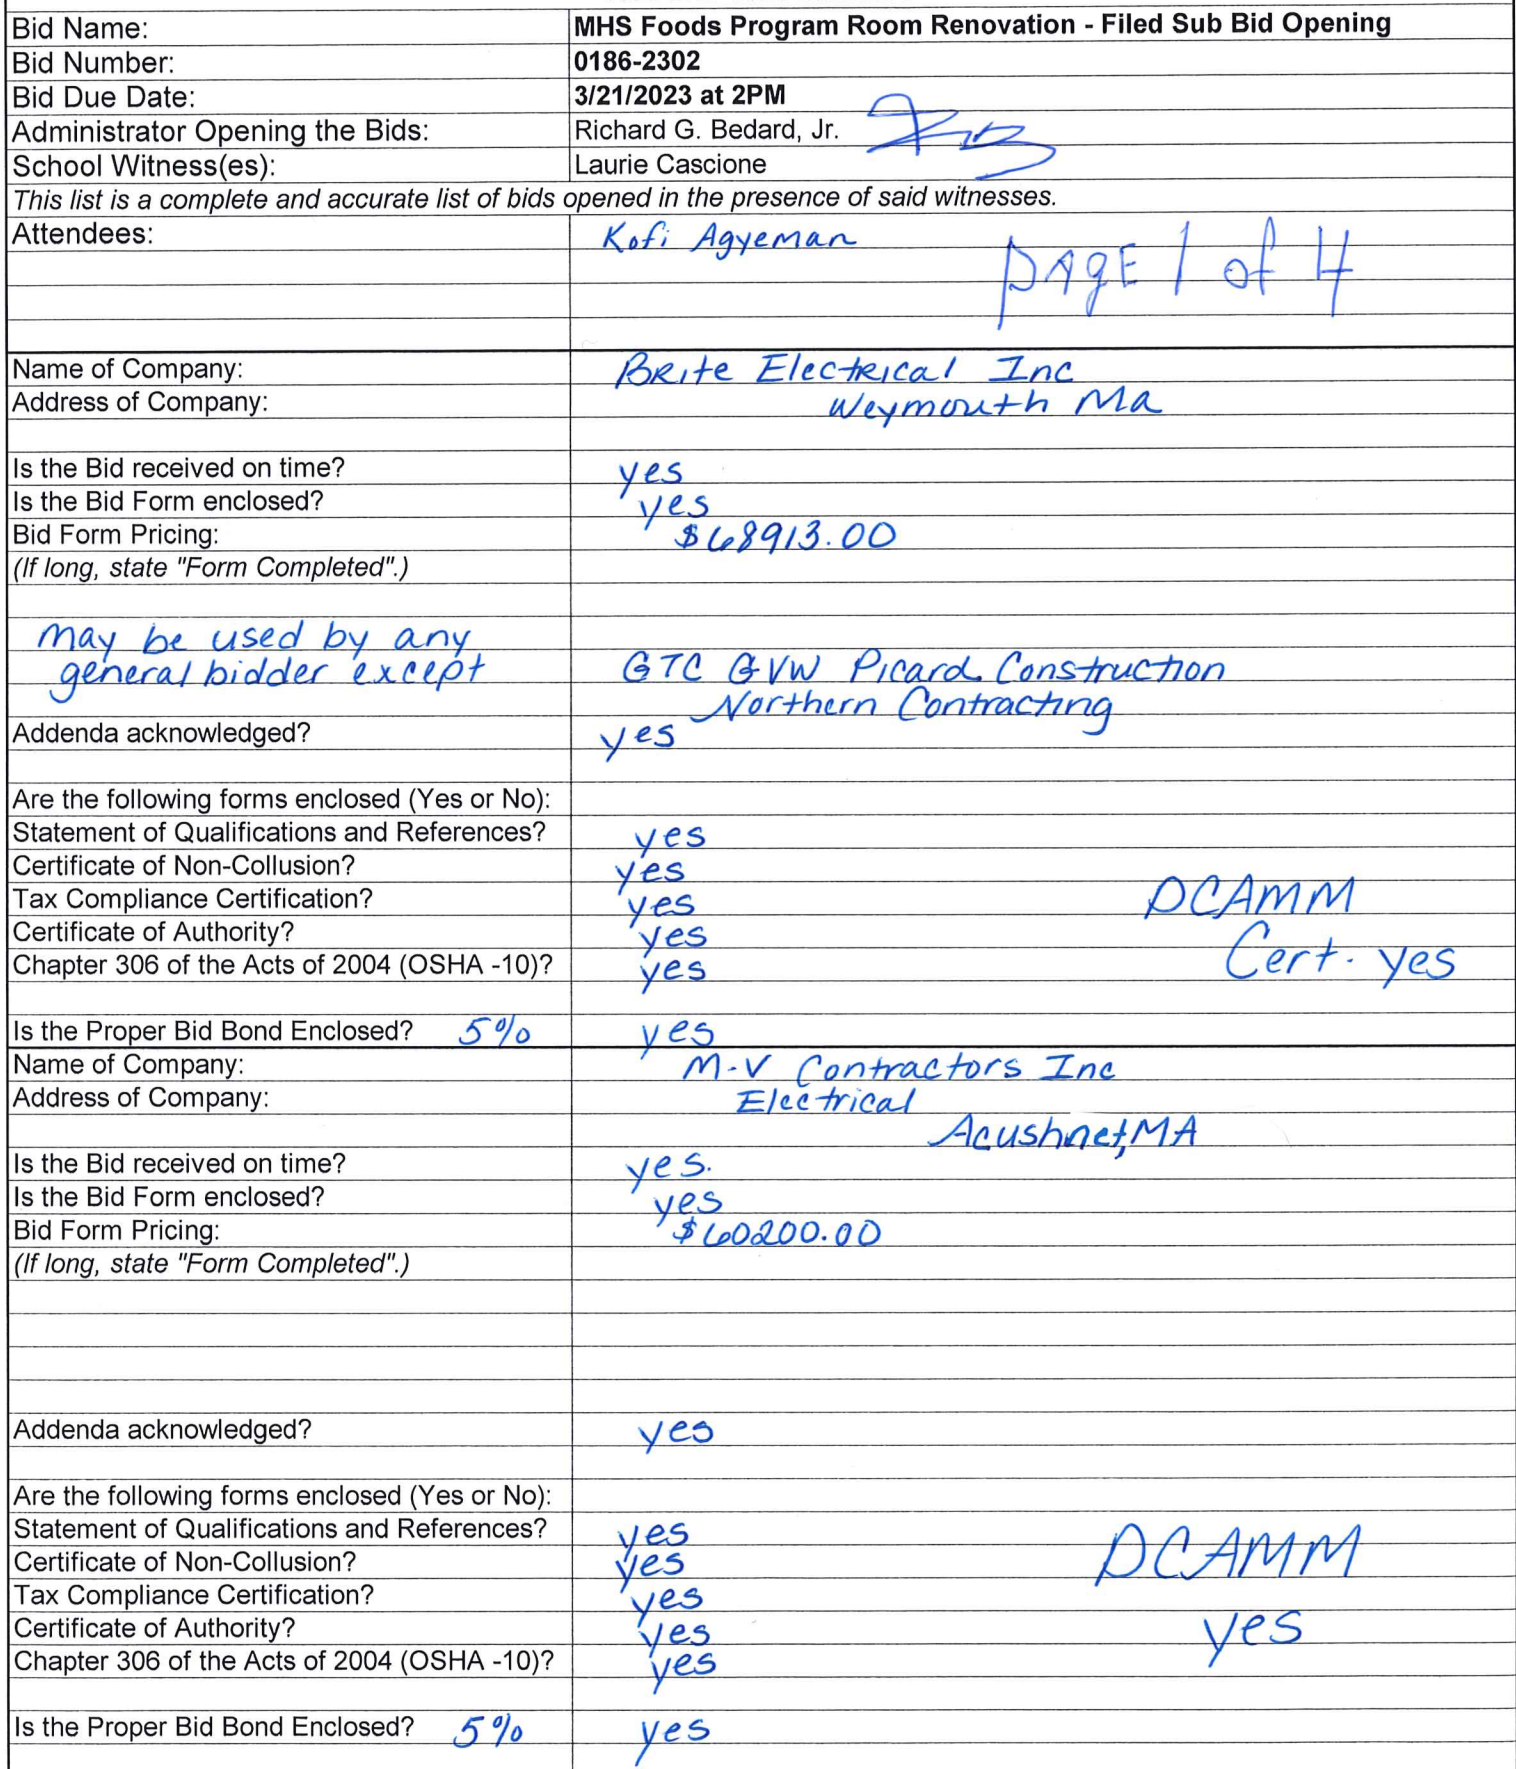 Bid Name: MHS Foods Program Room Renovation - Filed Sub Bid Opening
Bid Number: 0186-2302
Bid Due Date: 3/21/2023 at 2PM
Administrator Opening the Bids: Richard G. Bedard, Jr.
School Witness(es): Laurie Cascione
This list is a complete and accurate list of bids opened in the presence of said witnesses.
Attendees: Kofi Agyeman
PAGE 1 of 4
Name of Company: Brite Electrical Inc
Address of Company: Weymouth Ma
Is the Bid received on time? yes
Is the Bid Form enclosed? yes
Bid Form Pricing: $68913.00
(If long, state "Form Completed".)
may be used by any
general bidder except GTC GVW Picard Construction
Northern Contracting
Addenda acknowledged? yes
Are the following forms enclosed (Yes or No):
Statement of Qualifications and References? yes
Certificate of Non-Collusion? yes
Tax Compliance Certification? yes DCAMM
Certificate of Authority? yes
Chapter 306 of the Acts of 2004 (OSHA -10)? yes Cert. yes
Is the Proper Bid Bond Enclosed? 5% yes
Name of Company: M-V Contractors Inc
Address of Company: Electrical
Acushnet, MA
Is the Bid received on time? yes.
Is the Bid Form enclosed? yes
Bid Form Pricing: $60200.00
(If long, state "Form Completed".)
Addenda acknowledged? yes
Are the following forms enclosed (Yes or No):
Statement of Qualifications and References? yes
Certificate of Non-Collusion? yes DCAMM
Tax Compliance Certification? yes
Certificate of Authority? yes yes
Chapter 306 of the Acts of 2004 (OSHA -10)? yes
Is the Proper Bid Bond Enclosed? 5% yes